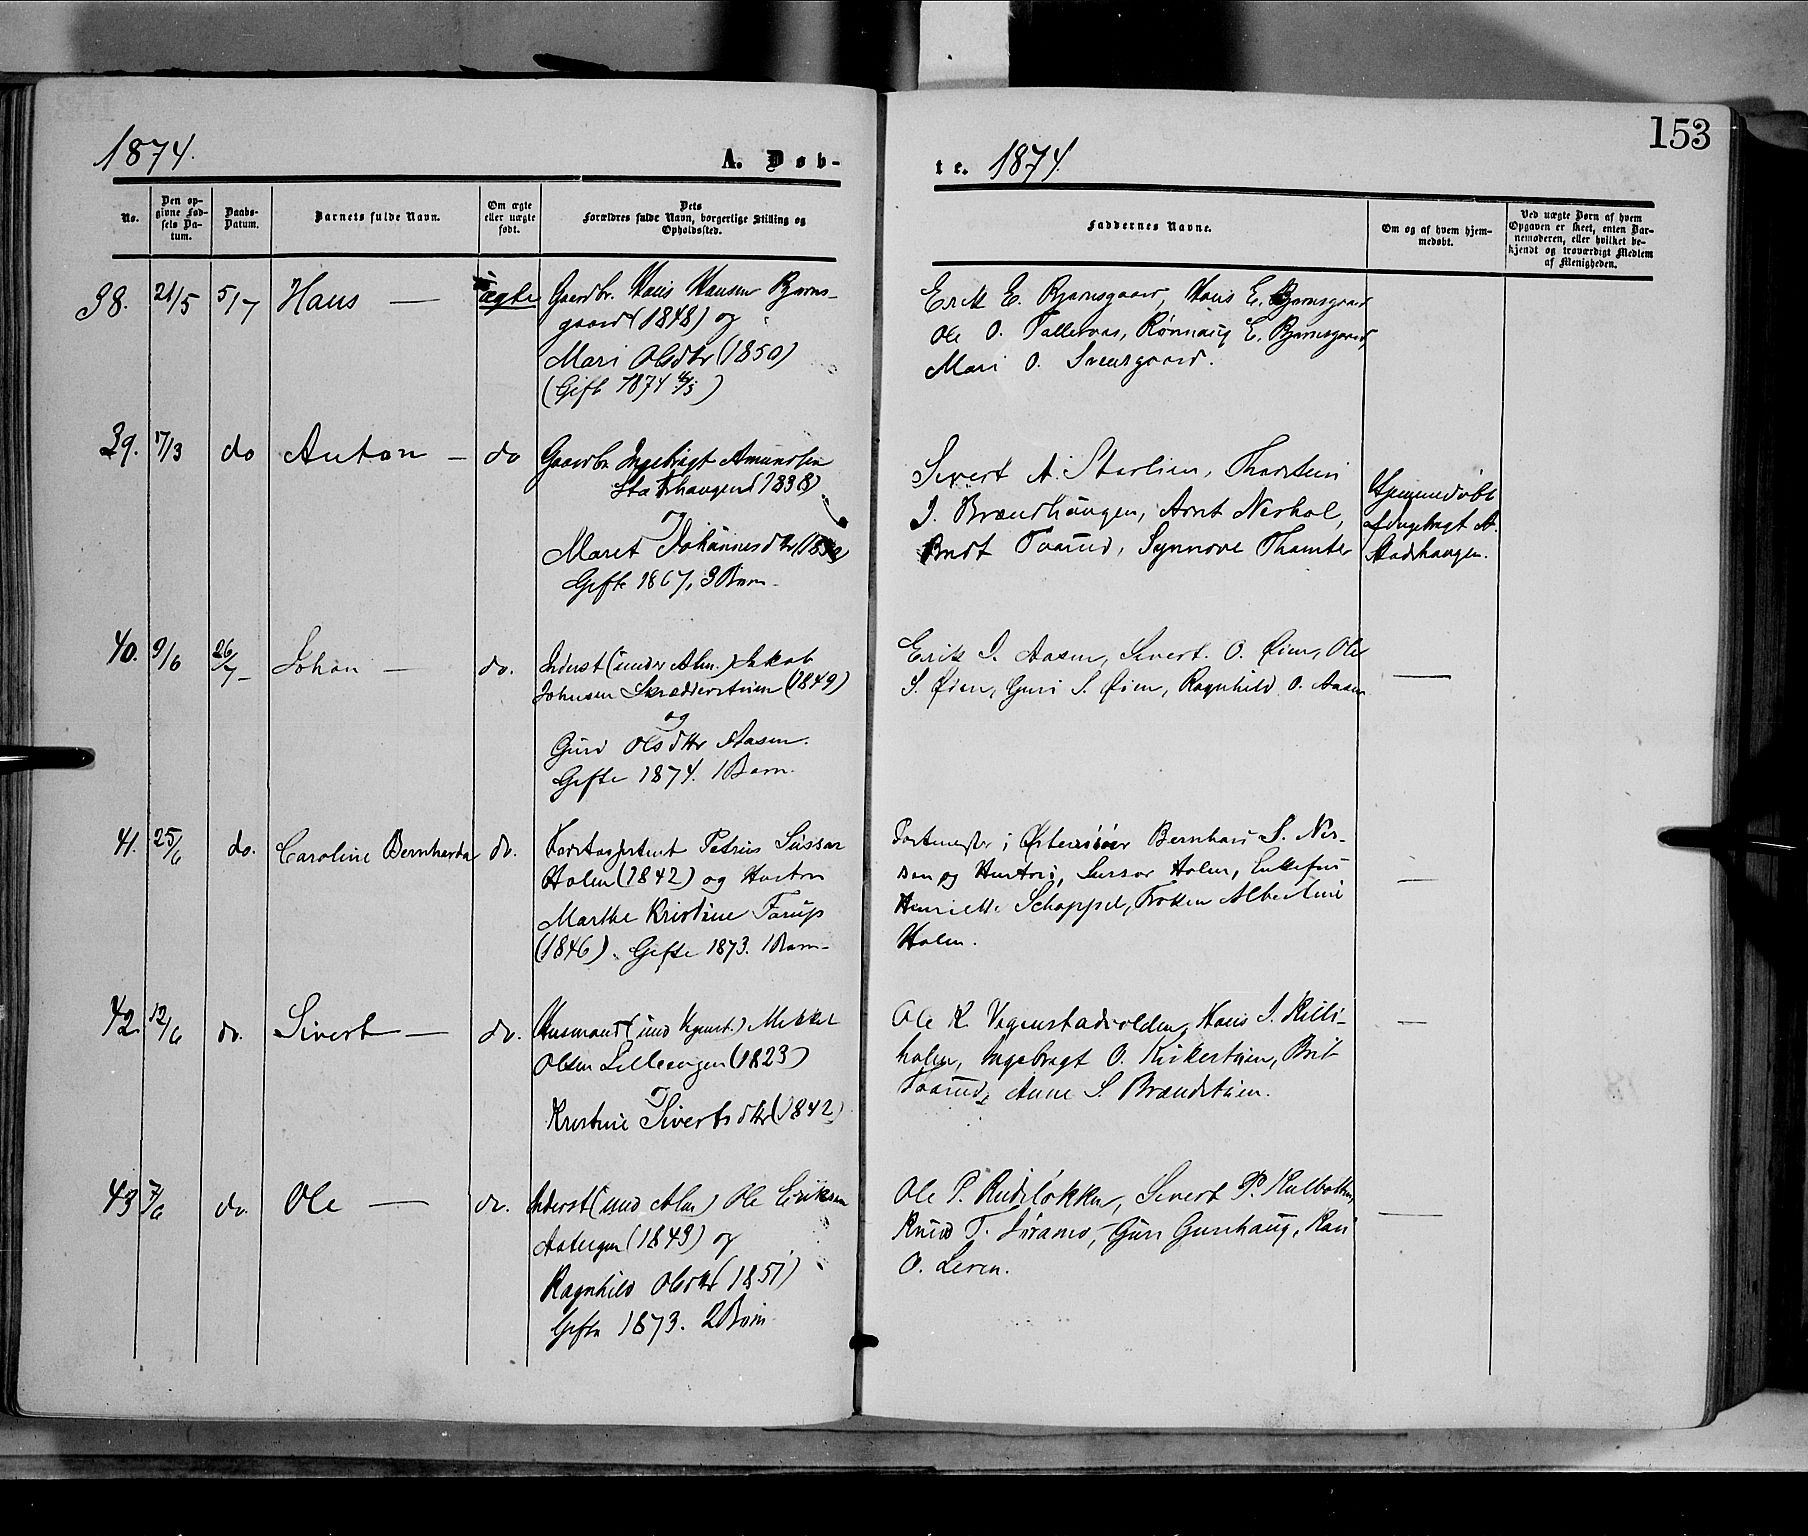 153
1874.
A. Døb-
te. 1874.
No.
Den op-
givne Fød-
sels Da-
tum.
Daabs-
Datum.
Barnets fulde Navn.
Om ægte
eller uægte
født.
Dets
Forældres fulde Navn, borgerlige Stilling og
Opholdssted.
Faddernes Navne.
Om og af hvem hjem-
medøbt.
Ved uægte Børn af hvem
Opgaven er skeet, enten Bar-
nemoderen, eller hvilket be-
kjendt og troværdigt Medlem
af Menigheden.
38. 21/5 5/7 Hans — ægte
Gaardbr. Hans Hansen Bjørns-
gaard (1848) og
Mari Olsdtr (1850)
(Gift 1874)
Erik E. Bjørnsgaard, Hans E. Bjørnsgaard
Ole O. Talleraas, Rønnaug E. Bjørnsgaard,
Mari O. Svensgaard.
39. 17/3 do Anton — do
Gaardbr. Ingebrigt Amundsen
Stadshaugen (1838)
og
Maret Johannesdtr
Gifte 1867, 3 Børn.
Sivert A. Starlien, Thorstein
J. Brændhaugen, Arnt Nerhol,
Tvarud, Synnøve Thamter
Hjemmedøbt
af Ingebrigt A.
Stadshaugen.
40. 9/6 26/7 Johan — do.
Inderst (under Alm.) Jakob
Johnsen Skrædderstuen (1849)
og
Guri Olsdtr Aasen.
Gifte 1874. 1 Barn.
Erik J. Aasen, Sivert O. Øien, Ole
S. Øien, Guri S. Øien, Ragnhild O. Aasen
—
41. 25/6 do. Caroline Bernharda do.
Forstassistent Petrus Sussar
Holm (1842) og Hustru
Marthe Kristine Farup
(1846). Gifte 1873. 1 Barn.
Postmester i Østerrisøer Bernhard S. Nis-
sen og Hustru, Sussar Holm, Enkefru
Henriette Schappel, Frøken Albertine
Holm.
—
42. 12/6 do. Sivert — do.
Husmand (und Vgnst.) Mikkel
Olsen Lilleengen (1823)
og
Kristine Sivertsdtr (1842)
Ole K. Vegenstadvolden, Hans J. Killi-
holm, Ingebrigt O. Kirkestuen, Brit
Tvarud, Anne S. Brændstuen.
—
43 7/6 do. Ole — do.
Inderst (und Alm) Ole Eriksen
(1849) og
Ragnhild Olsdtr (1851)
Gifte 1873. 2 Børn
Ole P. Rudiløkken, Sivert P. Kulbotten,
Knud T. Liramo, Guri Gunhaug, Kari
O. Leren.
—